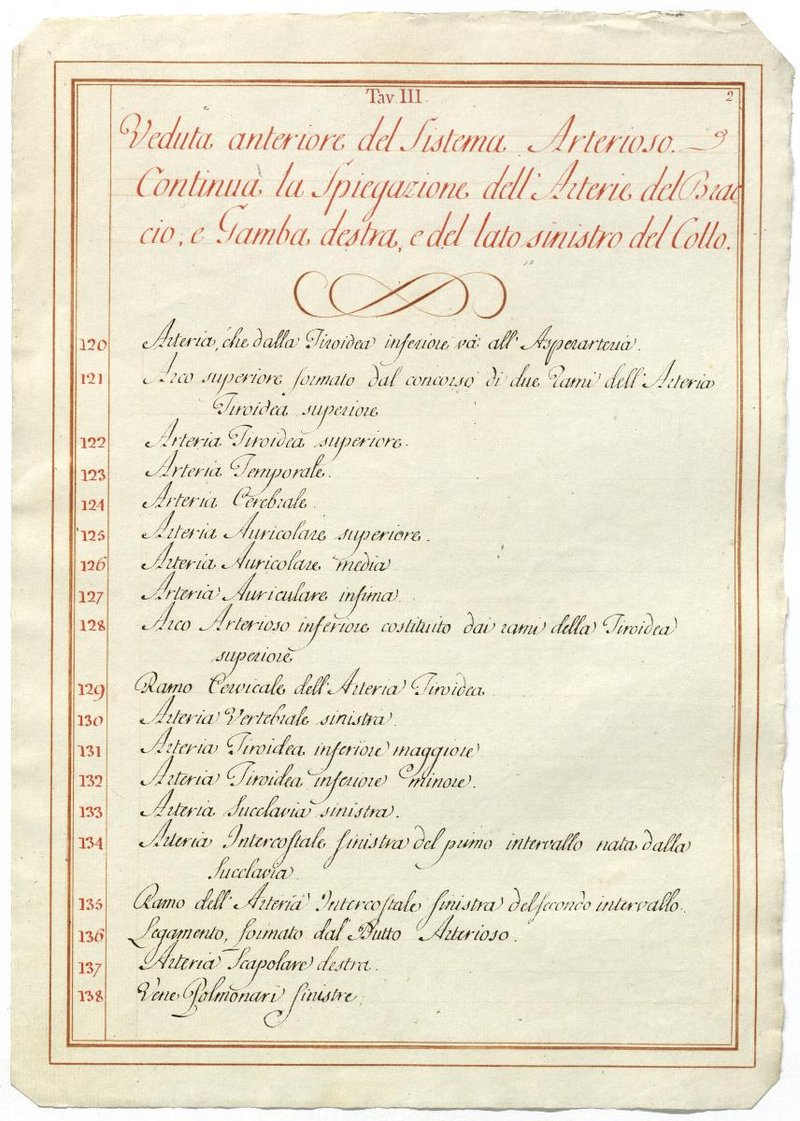 Tav III. 2
Veduta anteriore del Sistema Arterioso.
Continua la Spiegazione dell'Arterie del Brac
cio, e Gamba destra, e del lato sinistro del Collo.
120 Arteria, che dalla Tiroidea inferiore và all'Asperarteria.
121 Arco superiore formato dal concorso di due Rami dell'Arteria
Tiroidea superiore
122 Arteria Tiroidea superiore.
123 Arteria Temporale.
124 Arteria Cerebrale.
125 Arteria Auricolare superiore.
126 Arteria Auricolare media
127 Arteria Auriculare infima.
128 Arco Arterioso inferiore costituito dai rami della Tiroidea
superiore
129 Ramo Cervicale dell'Arteria Tiroidea
130 Arteria Vertebrale sinistra.
131 Arteria Tiroidea inferiore maggiore
132 Arteria Tiroidea inferiore minore.
133 Arteria Succlavia sinistra.
134 Arteria Intercostale sinistra del primo intervallo nata dalla
Succlavia
135 Ramo dell'Arteria Intercostale sinistra del secondo intervallo.
136 Legamento, formato dal Dutto Arterioso.
137 Arteria Scapolare destra.
138 Vene Polmonari sinistre.